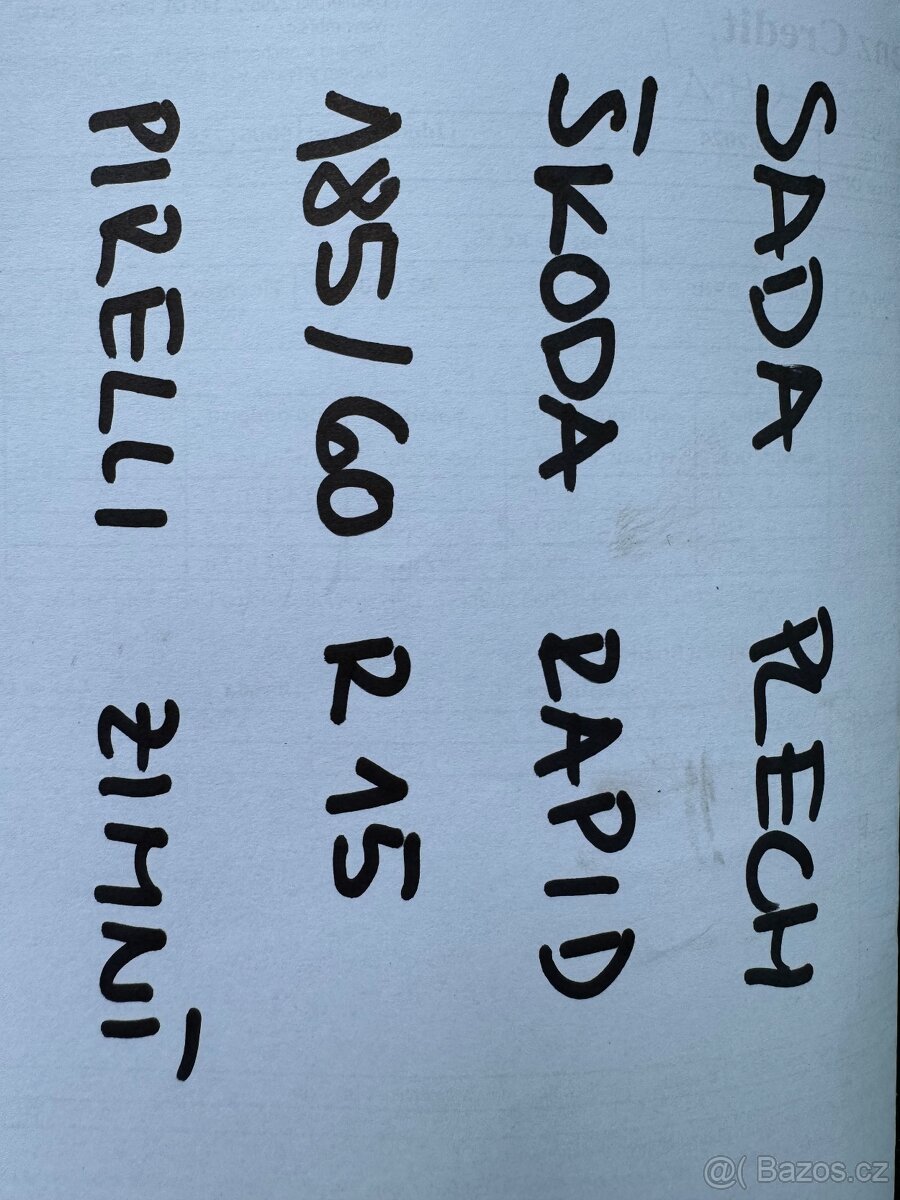 SADA PLECH
ŠKODA RAPID
185/60 R 15
PIRELLI ZIMNÍ
Credit,
@( Bazos.cz